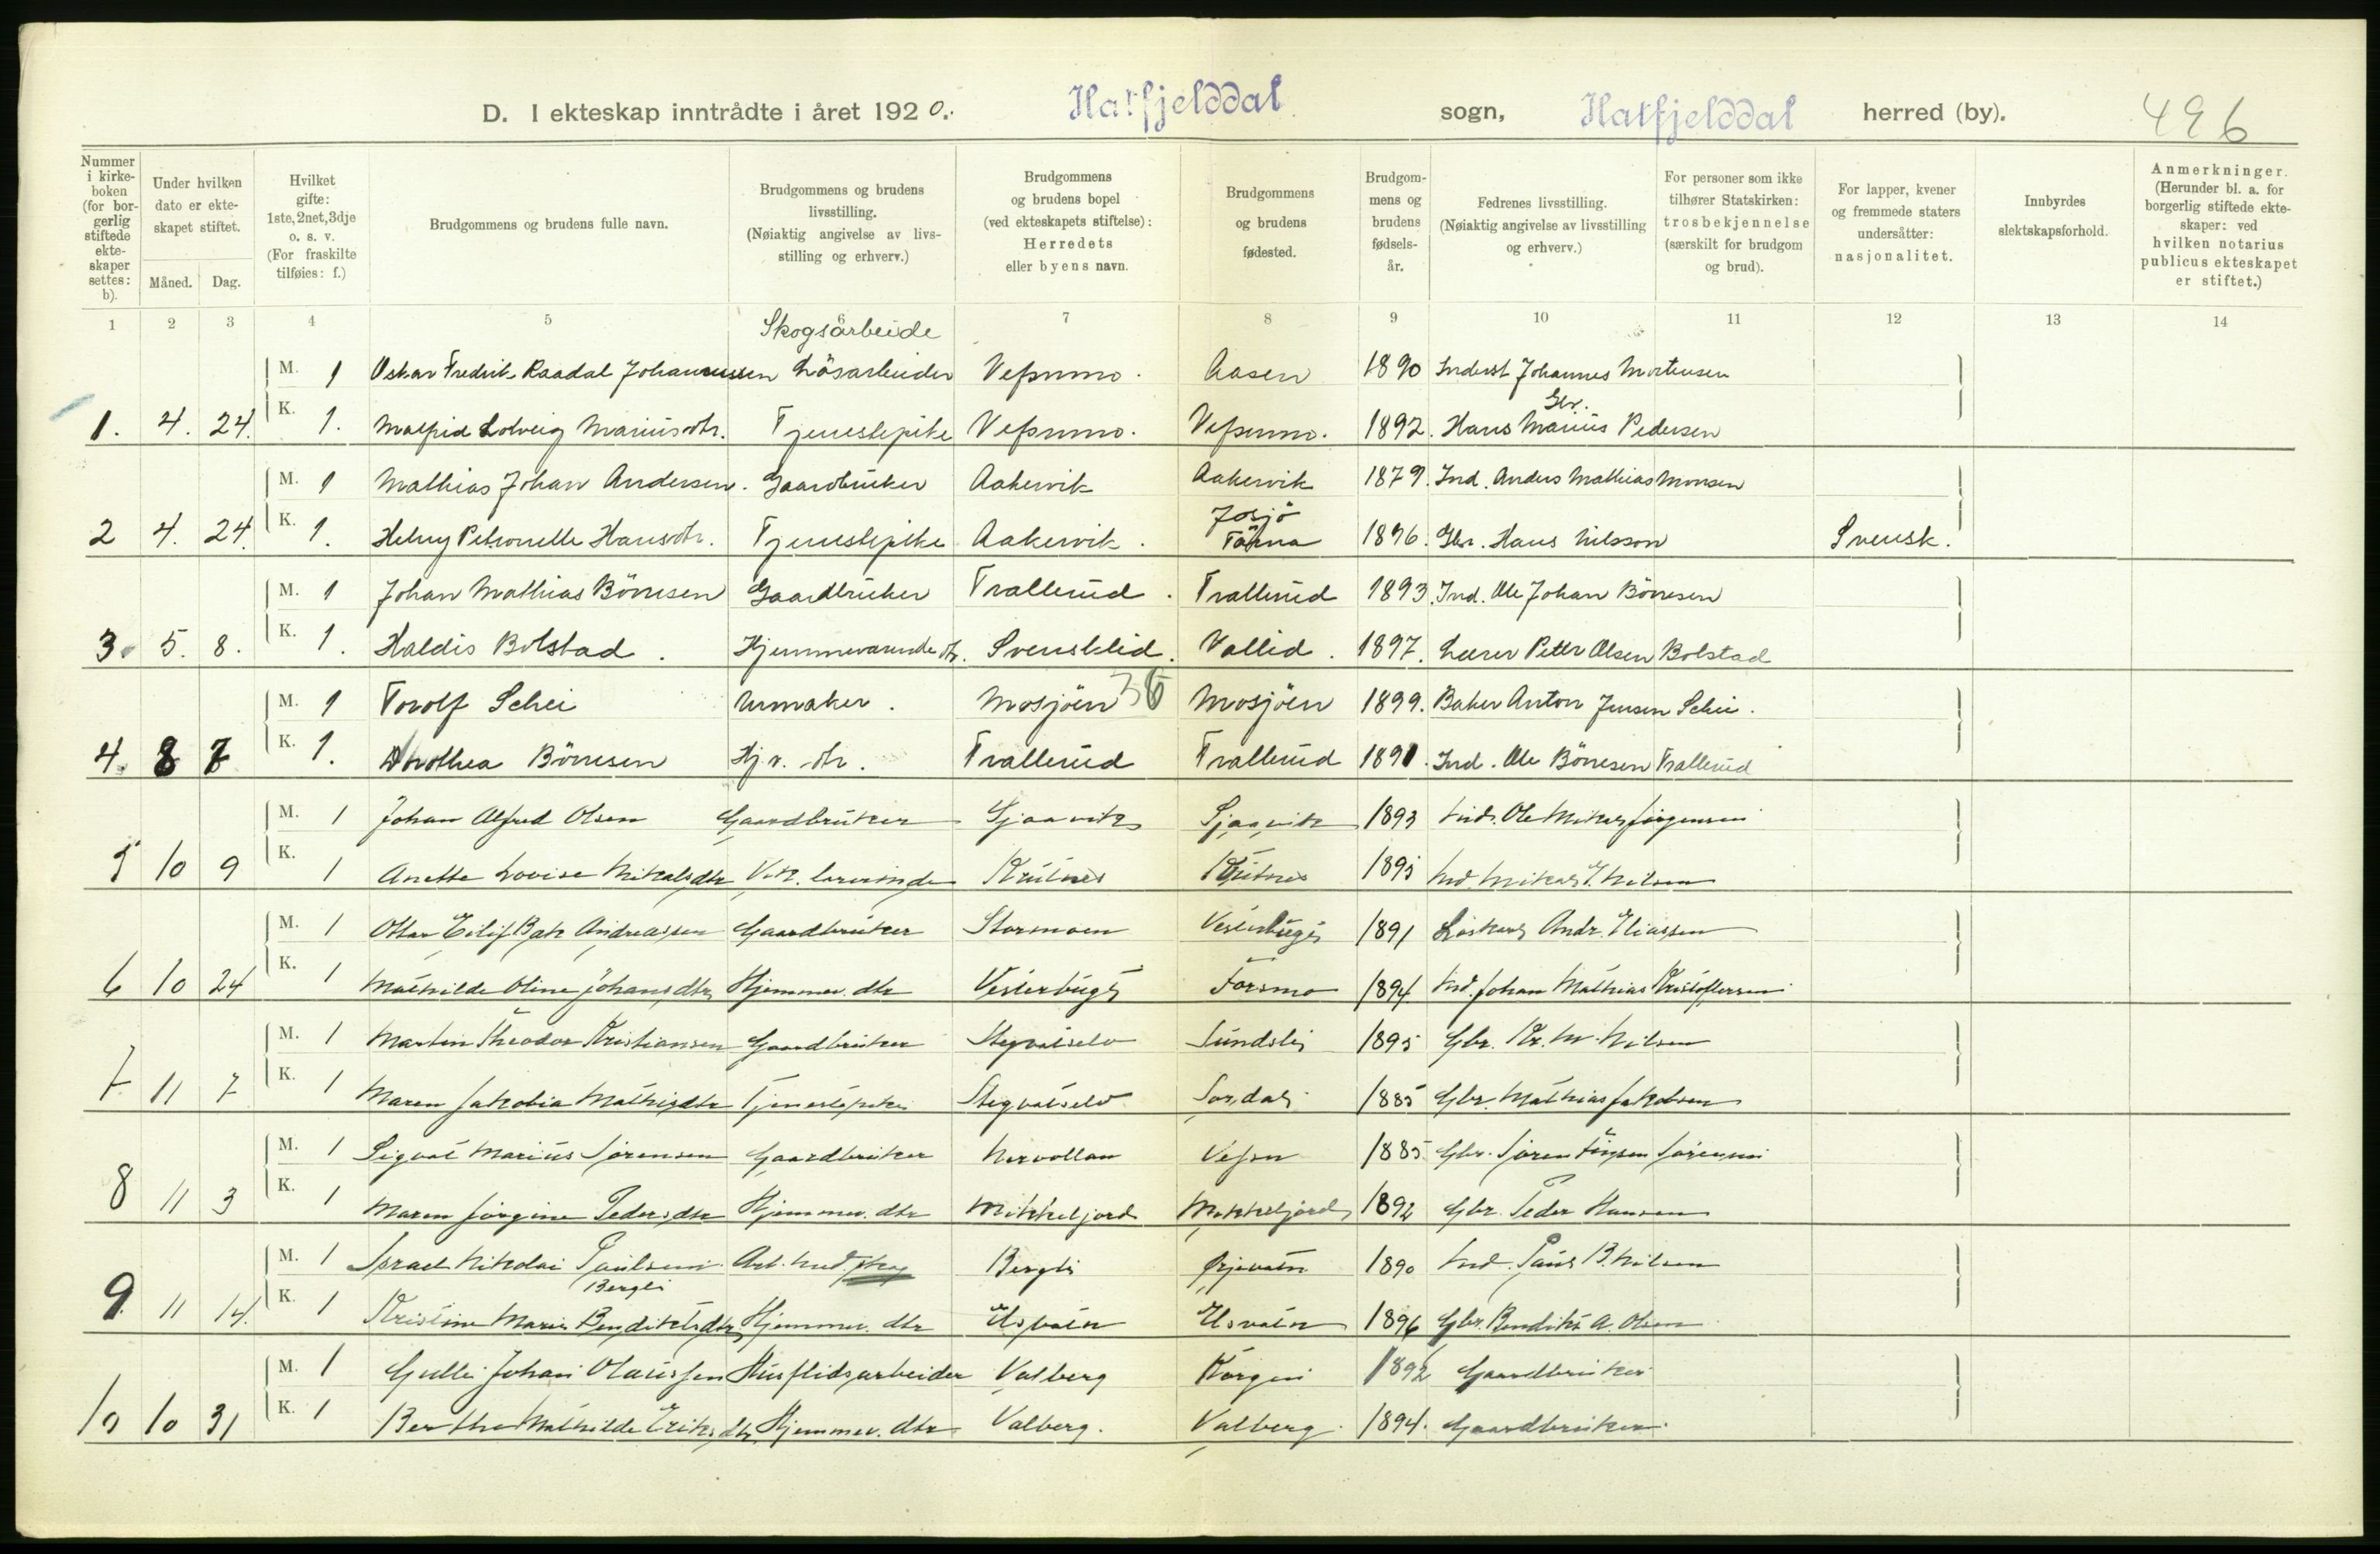 D. I ekteskap inntrådte i året 1920. Hatfjelddal sogn, Hatfjelddal herred (by). 496
Nummer i kirke-boken (for bor-gerlig stiftede ekte-skaper settes: b).
Under hvilken dato er ekte-skapet stiftet.
Måned. Dag.
Hvilket gifte: 1ste, 2net, 3dje o. s. v. (For fraskilte tilføies: f.)
Brudgommens og brudens fulle navn.
Brudgommens og brudens livsstilling. (Nøiaktig angivelse av livs-stilling og erhverv.)
Brudgommens og brudens bopel (ved ekteskapets stiftelse): Herredets eller byens navn.
Brudgommens og brudens fødested.
Brudgom-mens og brudens fødsels-år.
Fedrenes livsstilling. (Nøiaktig angivelse av livsstilling og erhverv.)
For personer som ikke tilhører Statskirken: trosbekjennelse (særskilt for brudgom og brud).
For lapper, kvener og fremmede staters undersåtter: nasjonalitet.
Innbyrdes slektskapsforhold.
Anmerkninger. (Herunder bl. a. for borgerlig stiftede ekte-skaper: ved hvilken notarius publicus ekteskapet er stiftet.)
1 2 3 4 5 6 7 8 9 10 11 12 13 14
Skogsarbeide
M. 1 Oskar Fredrik Raadal Johannessen Løsarbeider Vefsnmo. Aasen 1890 Inderst Johannes Mortensen
Gbr.
1. 4. 24. K. 1. Malfrid Solveig Mariusdtr. Tjenestepike Vefsnmo. Vefsnmo. 1892. Hans Marius Pedersen
M. 1 Mathias Johan Andersen. Gaardbruker Aakervik Aakervik 1879. Ind. Anders Mathias Monsen
Josjö
2 4. 24. K. 1. Helny Petronelle Hansdtr. Tjenestepike Aakervik. Tärna 1896. Gbr. Hans Nilsson Svensk.
M. 1 Johan Mathias Börresen Gaardbruker Trallerud. Trallerud 1893. Ind. Ole Johan Börresen
3. 5. 8. K. 1. Haldis Bolstad. Hjemmevarende dtr. Svensklid. Vallid. 1897. Lærer Petter Olsen Bolstad
M. 1 Torolf Schei Urmaker. Mosjöen 36 Mosjöen 1899. Baker Anton Jensen Schei.
4. 8 7 K. 1. Dorothea Börresen Hj.v. dtr. Trallerud Trallerud 1891. Ind. Ole Börresen Trallerud
M. 1 Johan Alfred Olsen Gaardbruker Sjaavik Sjaavik 1893 Ind. Ole Mikal Jörgensen
5 10 9 K. 1 Anette Lovise Mikalsdtr Vik. lærerinde Krutnes Krutnes 1895 Ind. Mikal J. Nilsen
M. 1 Ottar Eilif Bak Andreassen Gaardbruker Stormoen Vesterbugt 1891 Andr. Eliassen
6 10 24 K. 1 Mathilde Oline Johansdtr Hjemmev. dtr Vesterbugt Forsmo 1894 Ind. Johan Mathias Kristoffersen
M. 1 Martin Theodor Kristiansen Gaardbruker Stegvatselv Sundsli 1895 Gbr. Kr. M. Nilsen
7 11 7 K. 1 Maren Jakobia Mathisdtr Tjenestepike Stegvatselv Sørdal 1885 Gbr. Mathias Jakobsen
M. 1 Sigvat Marius Sørensen Gaardbruker Nervollan Vefsn 1885 Gbr. Søren Sørensen
8 11 3 K. 1 Maren Jørgine Pedersdtr Hjemmev. dtr Mikkeljord Mikkeljord 1892 Gbr. Peder Hansen
M. 1 Israel Nikolai Paulsen Arb. ved skog Bergli Ørjevatn 1890 Ind. Paul B. Nilsen
Bergli
9. 11 14. K. 1 Kristine Marie Bendiktsdtr Hjemmev. dtr Elsvatn Elsvatn 1896 Gbr. Bendikt A. Olsen
M. 1 Gulli Johan Olaussen Husflidsarbeider Valberg Korgen 1892 Gaardbruker
10 10 31 K. 1 Berthe Mathilde Eriksdtr Hjemmev. dtr Valberg. Valberg. 1894. Gaardbruker.